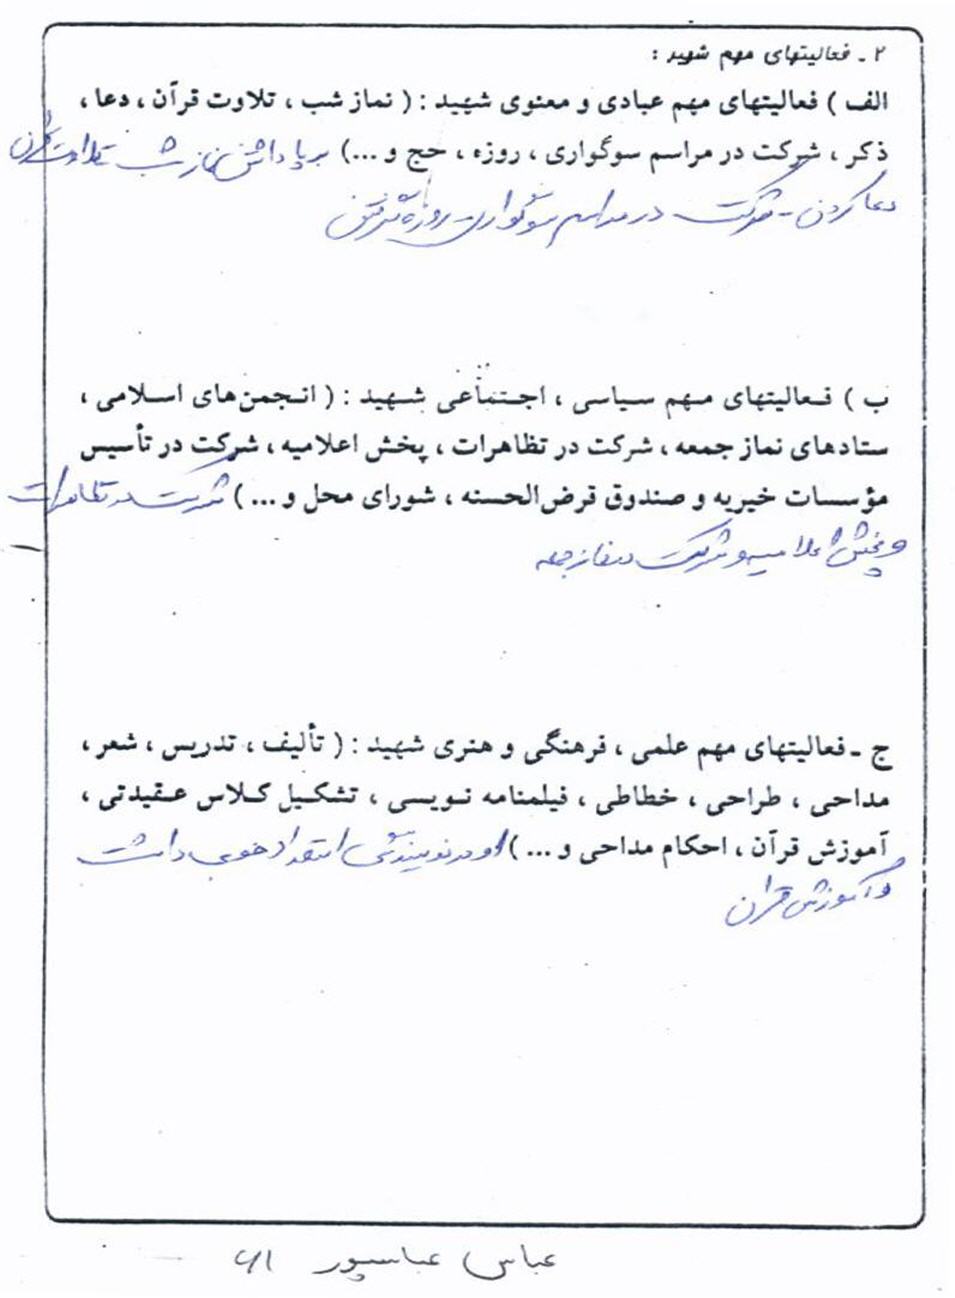 ۲ ـ فعالیتهای مهم شهید :
الف ) فعالیتهای مهم عبادی و معنوی شهید : ( نماز شب ، تلاوت قرآن ، دعا ،
ذکر ، شرکت در مراسم سوگواری ، روزه ، حج و ...) برپا داشتن نماز شب تلاوت قرآن
دعا کردن - شرکت در مراسم سوگواری روزه گرفتن
ب ) فعالیتهای مهم سیاسی ، اجتماعی شهید : ( انجمن‌های اسلامی ،
ستادهای نماز جمعه ، شرکت در تظاهرات ، پخش اعلامیه ، شرکت در تأسیس
مؤسسات خیریه و صندوق قرض‌الحسنه ، شورای محل و ... ) شرکت در تظاهرات
و پخش اعلامیه و شرکت در نماز جمعه
ج ـ فعالیتهای مهم علمی ، فرهنگی و هنری شهید : ( تألیف ، تدریس ، شعر ،
مداحی ، طراحی ، خطاطی ، فیلمنامه نویسی ، تشکیل کلاس عقیدتی ،
آموزش قرآن ، احکام مداحی و ... ) او در نویسندگی استعداد خوبی داشت
و آموزش قرآن
عباس عباسپور ۶۱